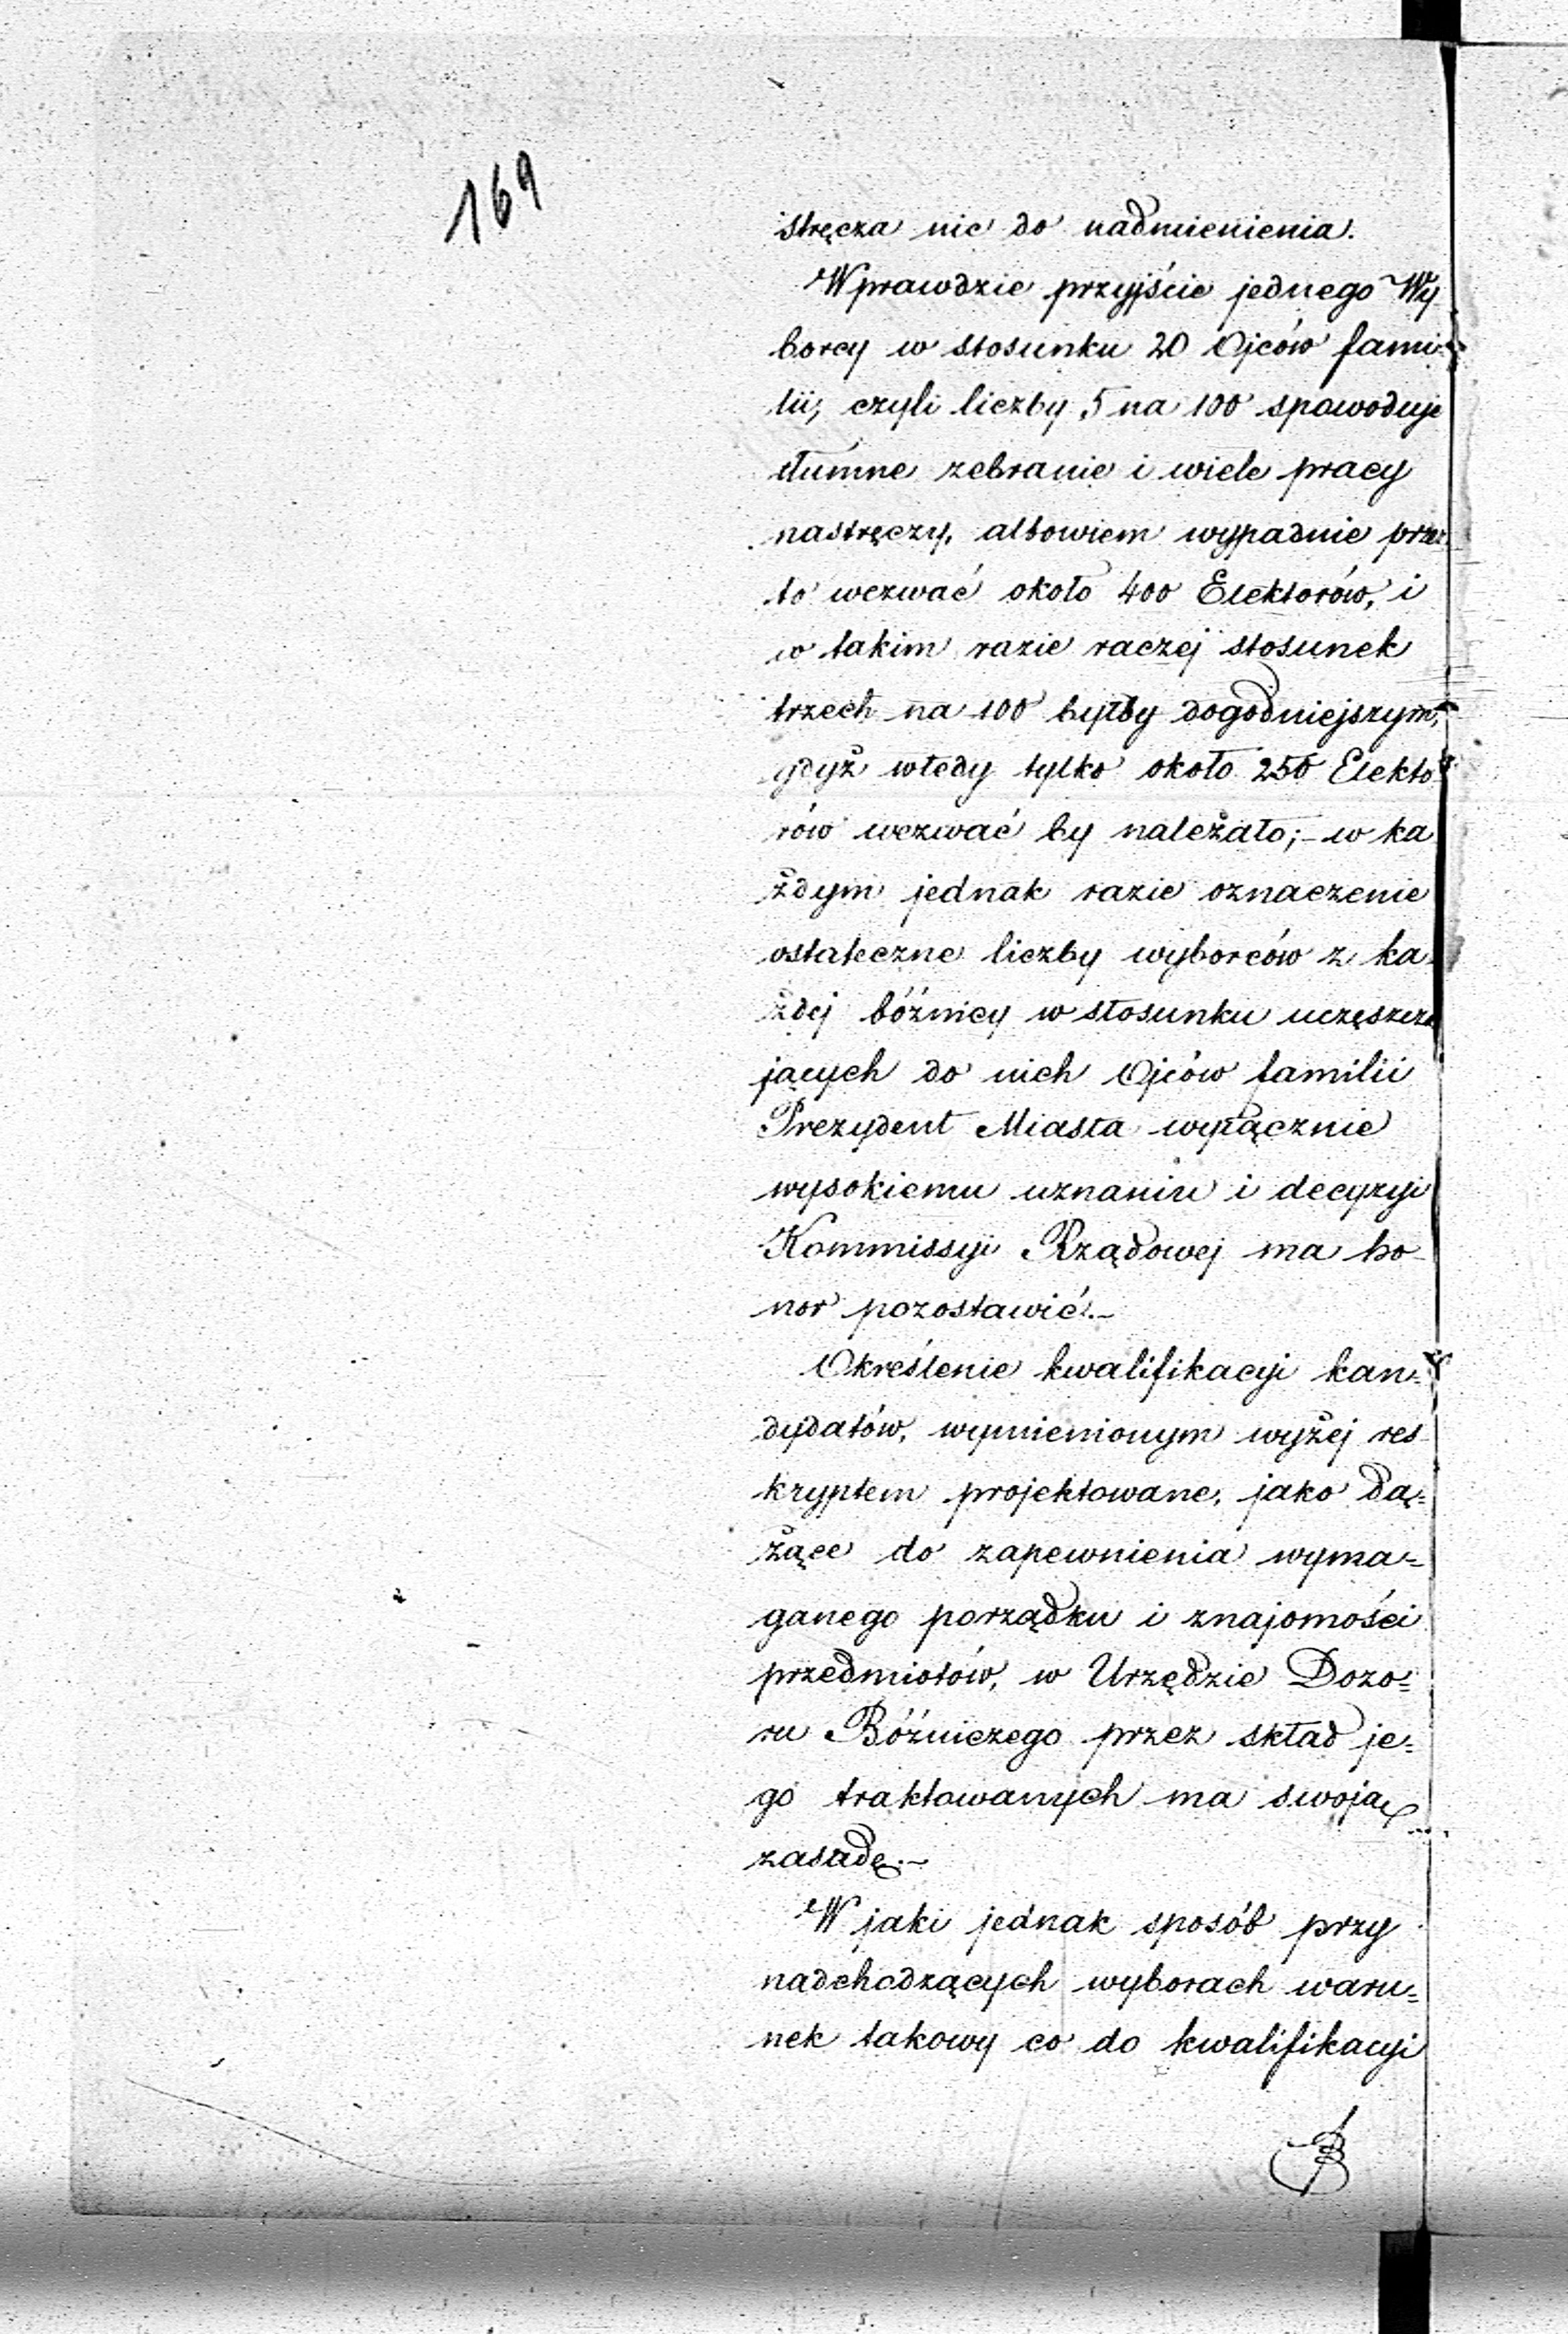 169
stręcza nic do nadmienienia.
Wprawdzie przyjście jednego Wy
borcy w stosunku 20 Ojców fami-
lii, czyli liczby 5 na 100 spowoduje
tłumne zebranie i wiele pracy
nastręczy, albowiem wypadnie prze
to wezwać około 400 Elektorów, i
w takim razie raczej stosunek
trzech na 100 byłby dogodniejszym,
gdyż wtedy tylko około 250 Elekto
rów wezwać by należało; - w ka
żdym jednak razie oznaczenie
ostateczne liczby wyborców z ka
żdej bóźnicy w stosunku uczęszcza
jących do nich Ojców familii
Prezydent Miasta wyłącznie
wysokiemu uznaniu i decyzyi
Kommissyi Rządowej ma ho-
nor pozostawić.-
Określenie kwalifikacyi kan=
dydatów, wymienionym wyżej res
kryptem projektowane, jako dą=
żące do zapewnienia wyma=
ganego porządku i znajomości
przedmiotów, w Urzędzie Dozo=
ru Bóźniczego przez skład je=
go traktowanych ma swoją
zasadę.-
W jaki jednak sposób przy
nadchodzących wyborach waru=
nek takowy co do kwalifikacyi